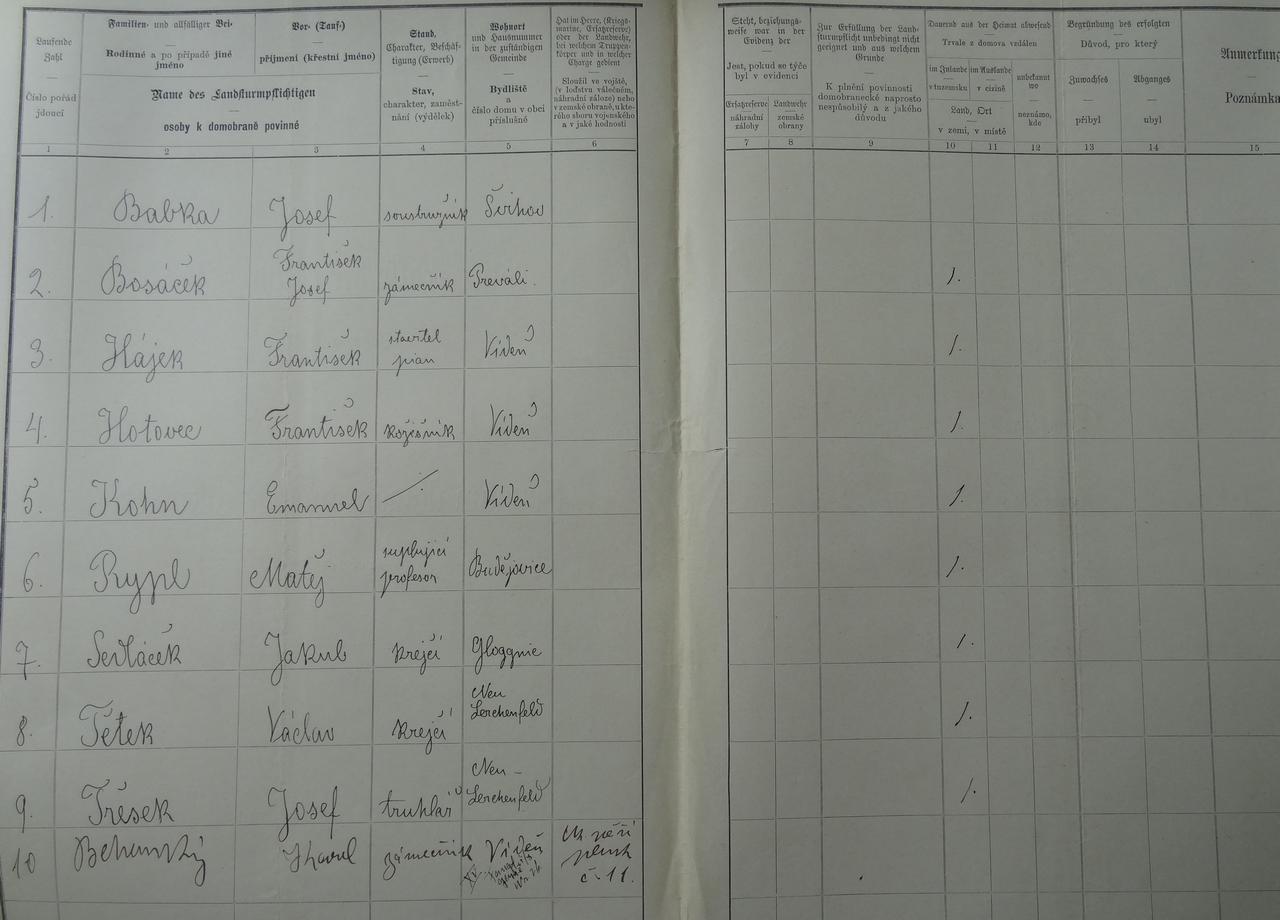 Laufende
Zahl
—
Číslo pořád
jdoucí
Familien- und allfälliger Bei-
—
Rodinné a po případě jiné
jméno
Vor- (Tauf-)
—
příjmení (křestní jméno)
Name des Landsturmpflichtigen
—
osoby k domobraně povinné
Stand,
Charakter, Beschäf-
tigung (Erwerb)
—
Stav,
charakter, zaměst-
nání (výdělek)
Wohnort
und Hausnummer
in der zuständigen
Gemeinde
—
Bydliště
a
číslo domu v obci
příslušné
Hat im Heere, (Kriegs-
marine, Ersatzreserve)
oder der Landwehr,
bei welchem Truppen-
körper und in welcher
Charge gedient
—
Sloužil ve vojště,
(v loďstvu válečném,
náhradní záloze) nebo
v zemské obraně, u kte-
rého sboru vojenského
a v jaké hodnosti
Steht, beziehungs-
weise war in der
Evidenz der
—
Jest, pokud se týče
byl v evidenci
Ersatzreserve
—
náhradní
zálohy
Landwehr
—
zemské
obrany
Zur Erfüllung der Land-
sturmpflicht unbedingt nicht
geeignet und aus welchem
Grunde
—
K plnění povinnosti
domobranecké naprosto
nespůsobilý a z jakého
důvodu
Dauernd aus der Heimat abwesend
—
Trvale z domova vzdálen
im Inlande
v tuzemsku
im Auslande
v cizině
Land, Ort
—
v zemi, v místě
unbekannt
wo
—
neznámo,
kde
Begründung des erfolgten
—
Důvod, pro který
Zuwachses
—
přibyl
Abganges
—
ubyl
Anmerkung
—
Poznámka
1 2 3 4 5 6 7 8 9 10 11 12 13 14 15
1. Babka Josef soustružník Švihov
2. Bosáček František
Josef zámečník Prevali. /.
3. Hájek František stavitel
pian Vídeň /.
4. Hotovec František kožišník Vídeň /.
5. Kohn Emanuel /. Vídeň /.
6. Rypl Matěj suplující
profesor Budějovice /.
7. Sedláček Jakub krejčí Gloggnic /.
8. Tetek Václav krejčí Neu
Lerchenfeld /.
9. Třesek Josef truhlář Neu –
Lerchenfeld /.
10 Karel zámečník Vídeň
XV
č. 11.